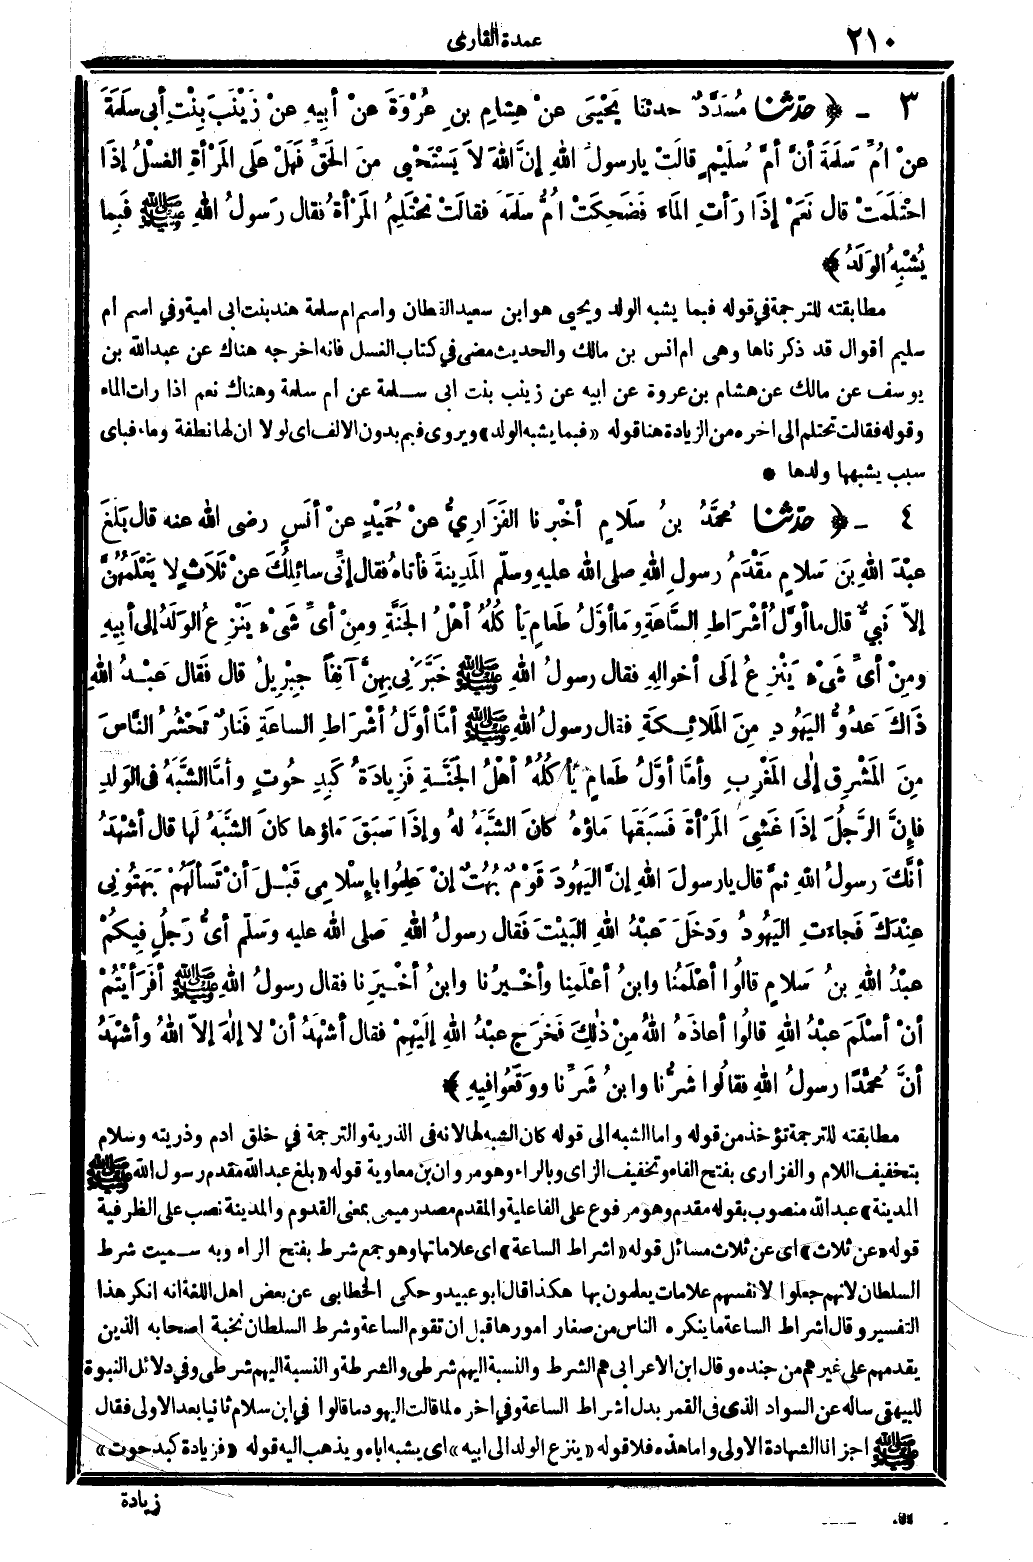 ٢١٠
عمدة القارى
٣ ـ ﴿ حدّثنا مُسَدَّدٌ حدثنا يَحْيَى عنْ هِشامِ بنِ عُرْوَةَ عنْ أبِيهِ عنْ زَيْنَبَ بِنْتِ أبى سلَمَةَ
عنْ امُ ِّ سَلَمَةَ أنَّ أمَّ سُلَيْمٍ قالَتْ يارسولُ اللهِ إنَّ اللهَ لاَ يَسْتَحْيِ منَ الحَقِّ فَهَلْ علَى المَرْأةِ الغسْلُ إذَا
احْتَلَمَتْ قال نَعَمْ إذَا رَأتِ المَاءَ فَضَحِكَتْ امُّ سلَمَةَ فقالَتْ تَحْتَلِمُ المَرْأةُ فقال رَسولُ اللهِ ﷺ فَبِما
يُشْبِهُ الوَلَدُ ﴾
مطابقته للترجمة في قوله فبما يشبه الولد ويحيى هو ابن سعيد القطان واسم ام سلمة هند بنت ابى امية وفي اسم ام
سليم أقوال قد ذكرناها وهى ام انس بن مالك والحديث مضى في كتاب الغسل فانه اخرجه هناك عن عبدالله بن
يوسف عن مالك عن هشام بن عروة عن ابيه عن زينب بنت ابى سلمة عن ام سلمة وهناك نعم اذا رات الماء
وقوله فقالت تحتلم الى اخره من الزيادة هنا قوله «فبما يشبه الولد» ويروى فبم بدون الالف اى لولا ان لها نطفة وماء فباى
سبب يشبهها ولدها *
٤ ـ ﴿ حدّثنا مُحَمَّدُ بنُ سَلاَمٍ أخْبرنا الفَزَارِيُّ عنْ حُمَيْدٍ عنْ أنَسٍ رضى الله عنه قال بَلَغَ
عبْدَ اللهِ بنَ سَلاَمٍ مَقْدَمُ رسولِ اللهِ صلى الله عليه وسلّم المَدِينةَ فأتاهُ فقال إنِّي سائِلُكَ عنْ ثَلاَثٍ لا يَعْلَمُهُنَّ
إلاّ نَبِيٌّ قال ما أوَّلُ أشْرَاطِ السَّاعَةِ وما أوَّلُ طَعامٍ يأْكُلُهُ أهْلُ الجَنَّةِ ومنْ أىِّ شَىْءٍ يَنْزِعُ الوَلَدُ إلى أبيهِ
ومِنْ أىِّ شَىْءٍ يَنْزِعُ إلَى أخوالِهِ فقال رسولُ اللهِ ﷺ خَبَّرَنِي بِهِنَّ آنِفاً جِبْرِيلُ قال فَقال عَبْدُ اللهِ
ذَاكَ عَدُوُّ اليَهُودِ مِنَ المَلاَئِكَةِ فقال رسولُ اللهِ ﷺ أمَّا أوَّلُ أشْرَاطِ الساعَةِ فَنارٌ تَحْشُرُ النَّاسَ
مِنَ المَشْرِقِ إلَى المَغْرِبِ وأمَّا أوَّلُ طَعامٍ يأْكُلُهُ أهْلُ الجَنَّةِ فَزِيادَةُ كَبِدِ حُوتٍ وأمَّا الشَّبَهُ فى الوَلَدِ
فإنَّ الرَّجُلَ إذَا غَشِىَ المَرْأةَ فَسَبَقَها ماؤُهُ كانَ الشَّبَهُ لهُ وإذَا سبَقَ ماؤُها كانَ الشَّبَهُ لها قال أشْهَدُ
أنَّكَ رسولُ اللهِ ثمَّ قال يارسولَ اللهِ إنَّ اليَهُودَ قَوْمٌ بُهُتٌ إنْ عَلِمُوا بإِسْلامِى قَبْلَ أنْ تَسألَهُمْ بَهَتُونِى
عِنْدَكَ فَجاءَتِ اليَهُودُ ودَخَلَ عَبْدُ اللهِ البَيْتَ فَقال رسولُ اللهِ صلى الله عليه وسَلّم أىُّ رَجُلٍ فِيكُمْ
عبْدُ اللهِ بنُ سَلامٍ قالُوا أعْلَمُنا وابنُ أعْلَمِنا وأخْيرُنا وابنُ أخْيرِنا فقال رسولُ اللهِ ﷺ أفَرَأيْتُمْ
أنْ أسْلَمَ عبْدُ اللهِ قالُوا أعاذَهُ اللهُ مِنْ ذلِكَ فَخَرَجَ عبْدُ اللهِ إلَيْهِمْ فقال أشْهَدُ أنْ لا إلٰهَ إلاّ اللهُ وأشْهَدُ
أنَّ مُحَمَّدًا رسولُ اللهِ فقالُوا شَرُّنا وابنُ شَرِّنا ووَقَعُوا فِيهِ ﴾
مطابقته للترجمة تؤخذ من قوله واما الشبه الى قوله كان الشبه لها لانه فى الذرية والترجمة في خلق ادم وذريته وسلام
بتخفيف اللام والفزارى بفتح الفاء وتخفيف الزاى وبالراء وهو مروان بن معاوية قوله «بلغ عبدالله مقدم رسول الله ﷺ
المدينة» عبدالله منصوب بقوله مقدم وهو مرفوع على الفاعلية والمقدم مصدر ميمى بمعنى القدوم والمدينة نصب على الظرفية
قوله «عن ثلاث» اى عن ثلاث مسائل قوله «اشراط الساعة» اى علاماتها وهو جمع شرط بفتح الراء وبه سميت شرط
السلطان لانهم جعلوا لانفسهم علامات يعلمون بها هكذا قال ابو عبيد وحكى الخطابى عن بعض اهل اللغة انه انكر هذا
التفسير وقال اشراط الساعة ما ينكره الناس من صغار امورها قبل ان تقوم الساعة وشرط السلطان نخبة اصحابه الذين
يقدمهم على غيرهم من جنده وقال ابن الاعرابى هم الشرط والنسبة اليهم شرطى والشرطة والنسبة اليهم شرطى وفي دلائل النبوة
للبيهقى ساله عن السواد الذى فى القمر بدل اشراط الساعة وفي اخره لما قالت اليهود ما قالوا في ابن سلام ثانيا بعد الاولى فقال
ﷺ اجزانا الشهادة الاولى واما هذه فلا قوله «ينزع الولد الى ابيه» اى يشبه اباه ويذهب اليه قوله «فزيادة كبد حوت»
زيادة